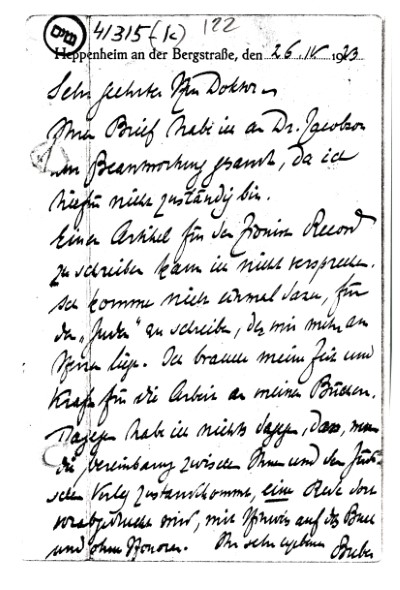 41315-(k) 122
Heppenheim an der Bergstraße, den 26. IV 1923
Sehr geehrter Herr Doktor,
Ihren Brief habe ich an Dr. Jacobson
um Beantwortung gesandt, da ich
hiefür nicht zuständig bin.
Einen Artikel für den Zionist Record
zu schreiben kann ich nicht versprechen.
Ich komme nicht einmal dazu, für
den „Juden" zu schreiben, der mir mehr am
Herzen liegt. Ich brauche meine Zeit und
Kraft für die Arbeit an meinen Büchern.
Dagegen habe ich nichts dagegen, dass, wenn
die Vereinbarung zwischen Ihnen und dem Jüdi-
schen Verlag zustandekommt, eine Rede dort
vorabgedruckt wird, mit Hinweis auf das Buch
und ohne Honorar. Ihr sehr ergebener Buber